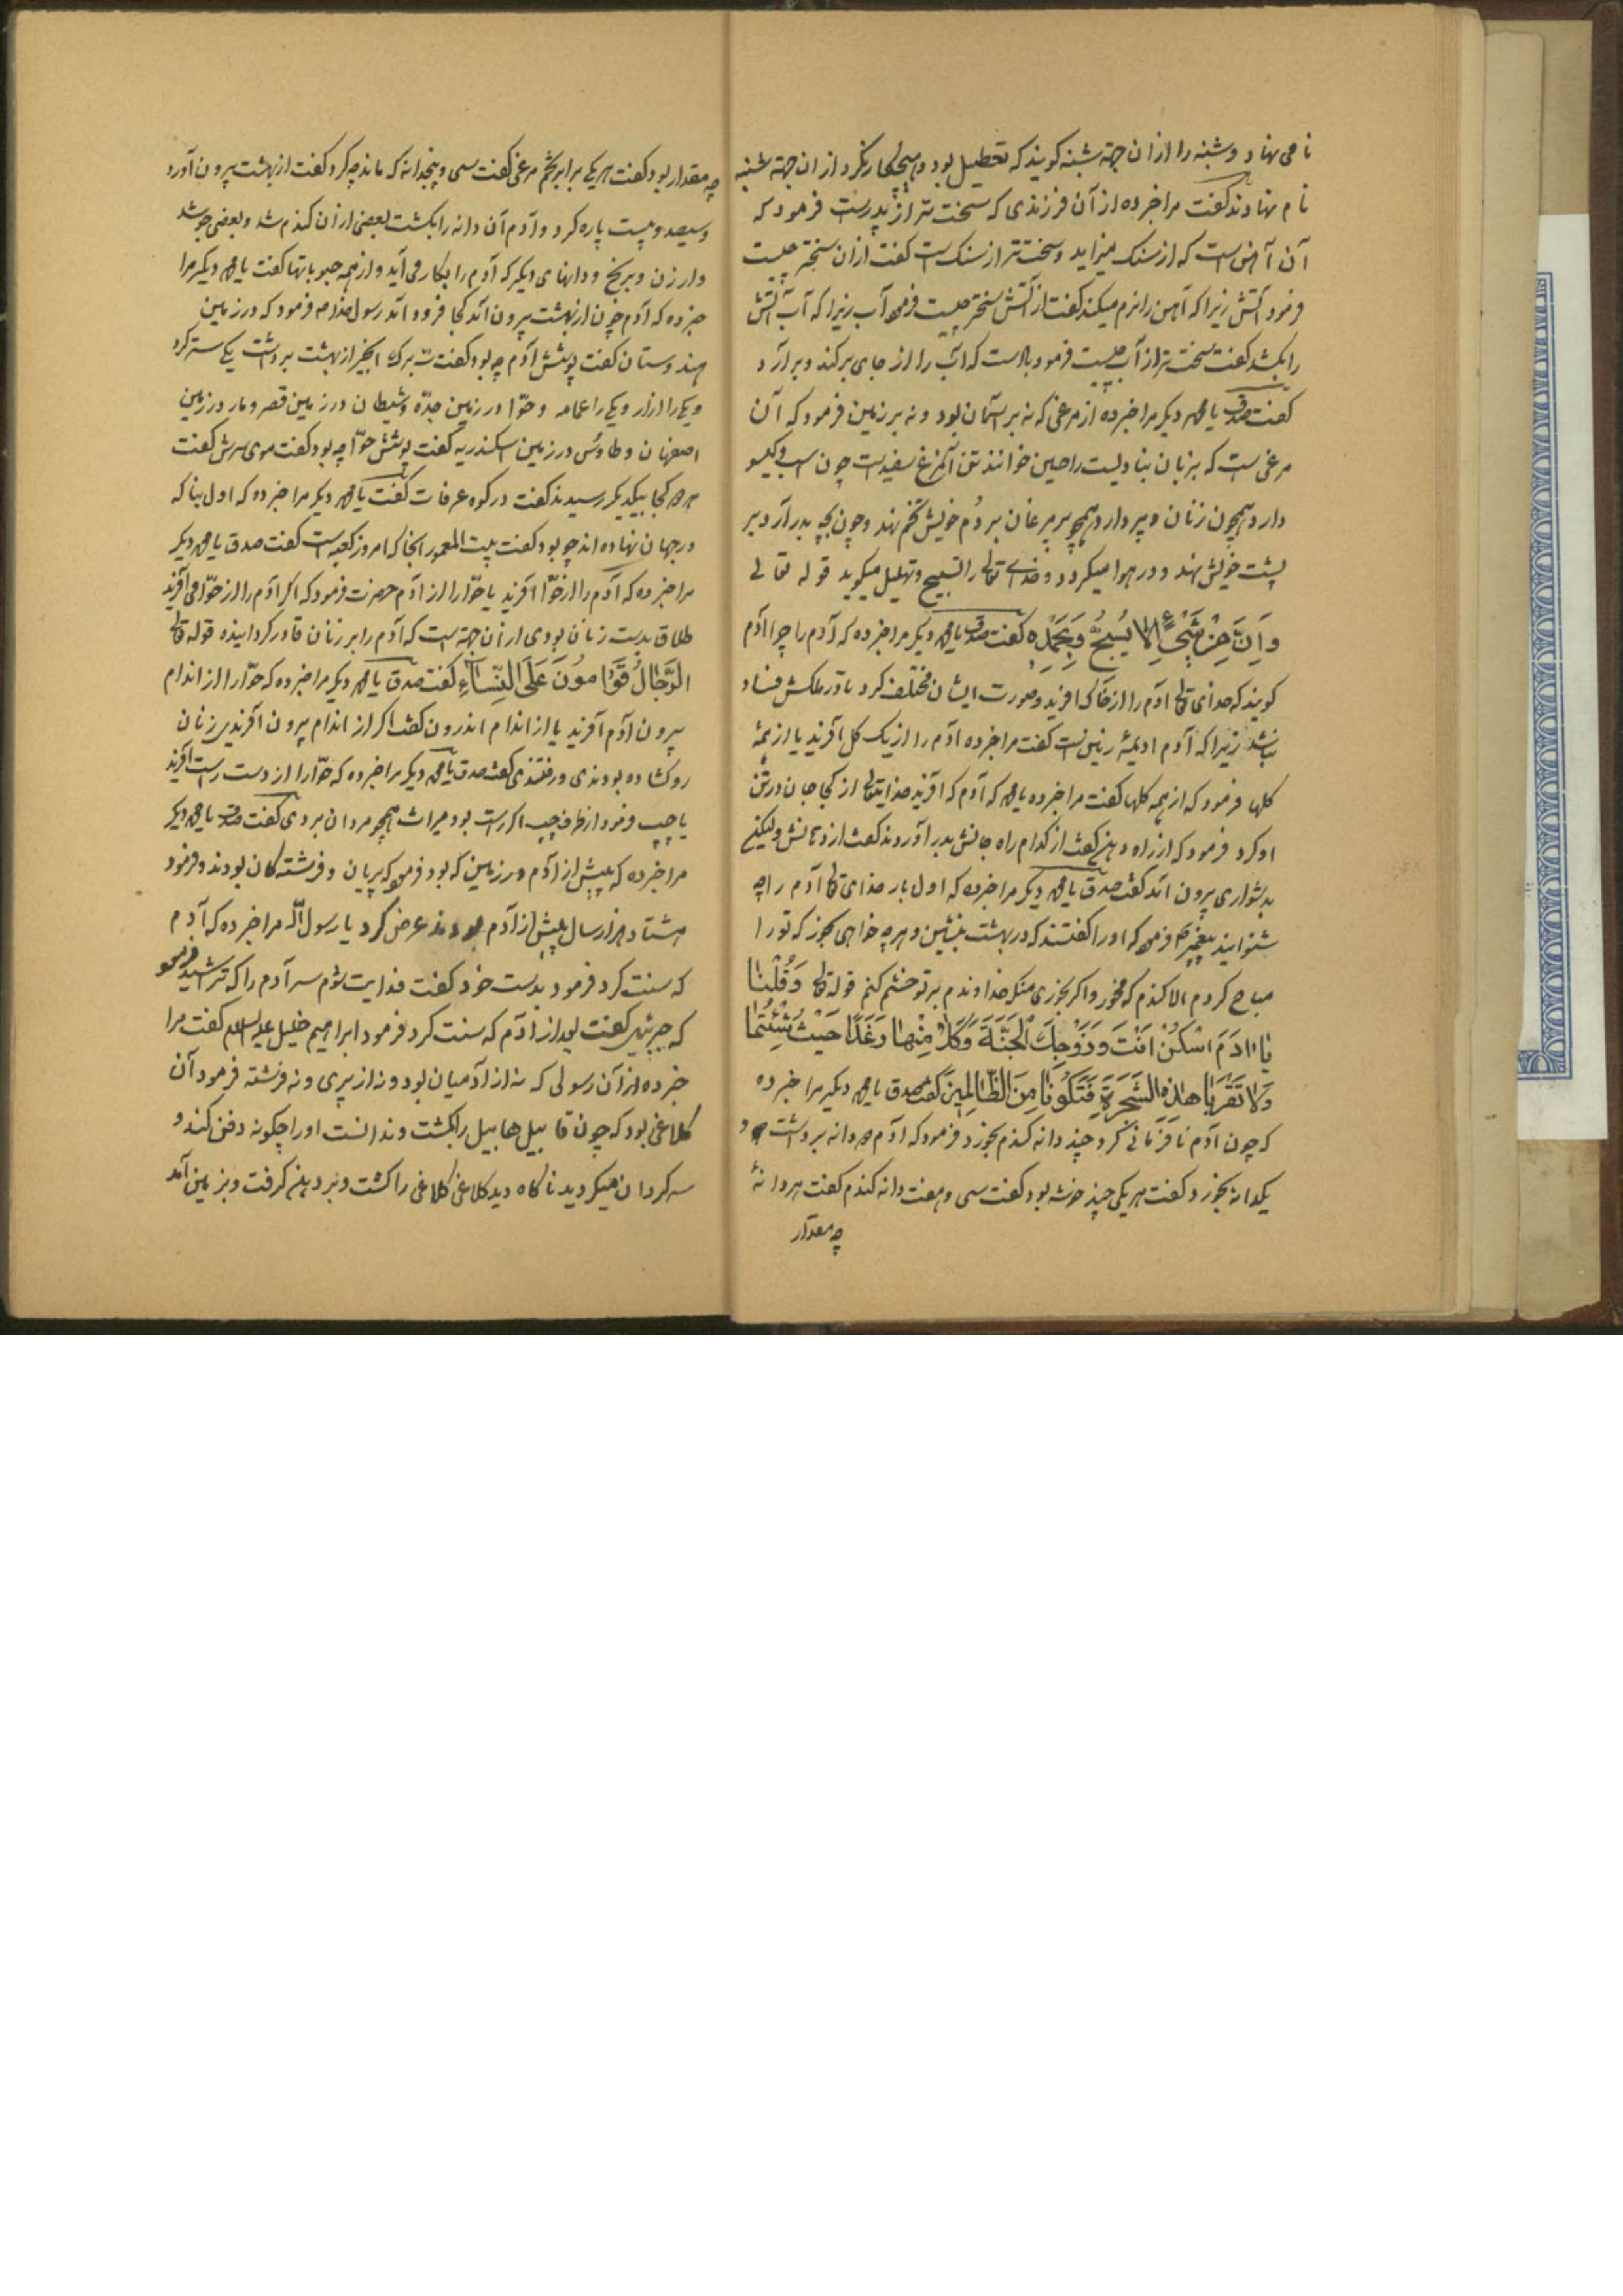 نامی نهاد و شنبه را از ان جهته شنبه کویند که تعطیل بود و هیچکار نکرد از ان جهته شنبه
نام نهادند کفت مرا خبر ده از آن فرزندی که سخت تر از پدرست فرمود که
آن آهن است که از سنک میزاید و سخت تر از سنک است کفت از ان سختر چیست
فرمود آتش زیرا که آهن را نرم میکند کفت از آتش سختر چیست فرمود آب زیرا که آب آتش
را بکشد کفت سخت تر از آب چیست فرمود باد است که آب را از جای برکند و برآرد
کفت صدق یا محمد دیکر مرا خبر ده از مرغی که نه بر آسمان بود و نه بر زمین فرمود که آن
مرغی است که بزبان خوانند تن آنمرغ سفید است چون اسب و کیسو
دارد همچون زنان و پر دارد همچو پر مرغان بر دُم خویش تخم نهد و چون بچه بدر آرد بر
پشت خویش نهد و در هوا میکردد و خدای تعالی را تسبیح و تهلیل میکوید قوله تعالی
وَاِنَّ مِنْ شَیْءٍ اِلّا یُسَبِّحُ وَبِحَمْدِهِ کفت صدق یا محمد دیکر مرا خبر ده که آدم را چرا آدم
کویند که خدای تعالی آدم را از خاک افرید و صورت ایشان مختلف کرد تا در ملکش فساد
نباشد زیرا که آدم ادیمهٔ زمین است کفت مرا خبر ده آدم را از یک کل آفرید یا از همهٔ
کلها فرمود که از همه کلها کفت مرا خبر ده یا محمد که آدم که آفرید خدایتعالی از کجا جان در تن
او کرد فرمود که از راه دهن کفت از کدام راه جانش بدر آوردند کفت از دهانش ولیکن
بدشواری بیرون آمد کفت صدق یا محمد دیکر مرا خبر ده که اول بار خدای تعالی آدم را چه
شنوانید پیغمبر فرمود که او را کفتند که در بهشت بنشین و هر چه خواهی بخور که تو را
مباح کردم الا کندم که مخور و اکر بخوری منکه خداوندم بر تو خشم کنم قوله تعالی وَقُلْنٰا
یٰا اٰدَمَ اسْکُنْ اَنْتَ وَزَوْجُكَ الْجَنَّةَ وَکُلاٰ مِنْهٰا رَغَدًا حَیْثُ شِئْتُمٰا
وَلاٰ تَقْرَبٰا هٰذِهِ الشَّجَرَةَ فَتَکُونٰا مِنَ الظّٰالِمِینَ کفت صدق یا محمد دیکر مرا خبر ده
که چون آدم نافرمانی کرد چند دانه کندم بخورد فرمود که آدم سه دانه برداشت و
یکدانه بخورد کفت هر یکی چند خوشه بود کفت سی و هفت دانه کندم کفت هر دانهٔ
چه مقدار
چه مقدار بود کفت هر یکی برابر تخم مرغی کفت سی و پنجدانه که ماند چه کرد کفت از بهشت بیرون آورد
و سیصد و بیست پاره کرد و آدم آن دانه را بکشت بعضی از ان کندم شد و بعضی جو شد
و ارزن و برنج و دانهای دیکر که آدم را بکار می آید و از همه حبوباتها کفت یا محمد دیکر مرا
خبر ده که آدم چون از بهشت بیرون آمد کجا فرود آمد رسول خدا ص فرمود که در زمین
هندوستان کفت پوشش آدم چه بود کفت سه برك انجیر از بهشت برداشت یکی ستر کرد
و یکی را ازار و یکی را عمامه و حوّا در زمین جدّه و شیطان در زمین قصر و مار در زمین
اصفهان و طاوُس در زمین اسکندریه کفت پوشش حوّا چه بود کفت موی سرش کفت
کجا بیکدیکر رسیدند کفت در کوه عرفات کفت یا محمد دیکر مرا خبر ده که اول بنا که
در جهان نهاده اند چو بود کفت بیت المعمور آنجا که امروز کعبه است کفت صدق یا محمد دیکر
مرا خبر ده که آدم را از حوّا آفرید یا حوّا را از آدم حضرت فرمود که اکر آدم را از حوّا می آفرید
طلاق بدست زنان بودی از آن جهته است که آدم را بر زنان قادر کردانیده قوله تعالی
الرِّجٰالُ قَوّٰامُونَ عَلَی النِّسٰاءِ کفت صدق یا محمد دیکر مرا خبر ده که حوّا را از اندام
بیرون آدم آفرید یا از اندام اندرون کفت اکر از اندام بیرون آفریدی زنان
رو کشاده بودندی و رفتندی کفت صدق یا محمد دیکر مرا خبر ده که حوّا را از دست راست آفرید
یا چپ فرمود از طرف چپ اکر راست بود میراث همچو مردان بردی کفت صدق یا محمد دیکر
مرا خبر ده که پیش از آدم در زمین که بود فرمود که پریان و فرشته کان بودند و فرمود
هشتاد هزار سال پیش از آدم بودند عرض کرد یا رسول الله مرا خبر ده که آدم
که سنت کرد فرمود بدست خود کفت فدایت شوم سر آدم را که تراشید فرمود
که جبرئیل کفت بعد از آدم که سنت کرد فرمود ابراهیم خلیل علیه السلام کفت مرا
خبر ده از آن رسولی که نه از آدمیان بود و نه از پری و نه فرشته فرمود آن
کلاغی بود که چون قابیل هابیل را بکشت و ندانست او را چکونه دفن کند و
سرکردان میکردید ناکاه دید کلاغی کلاغی را کشت و بر دهن کرفت و بزمین آمد